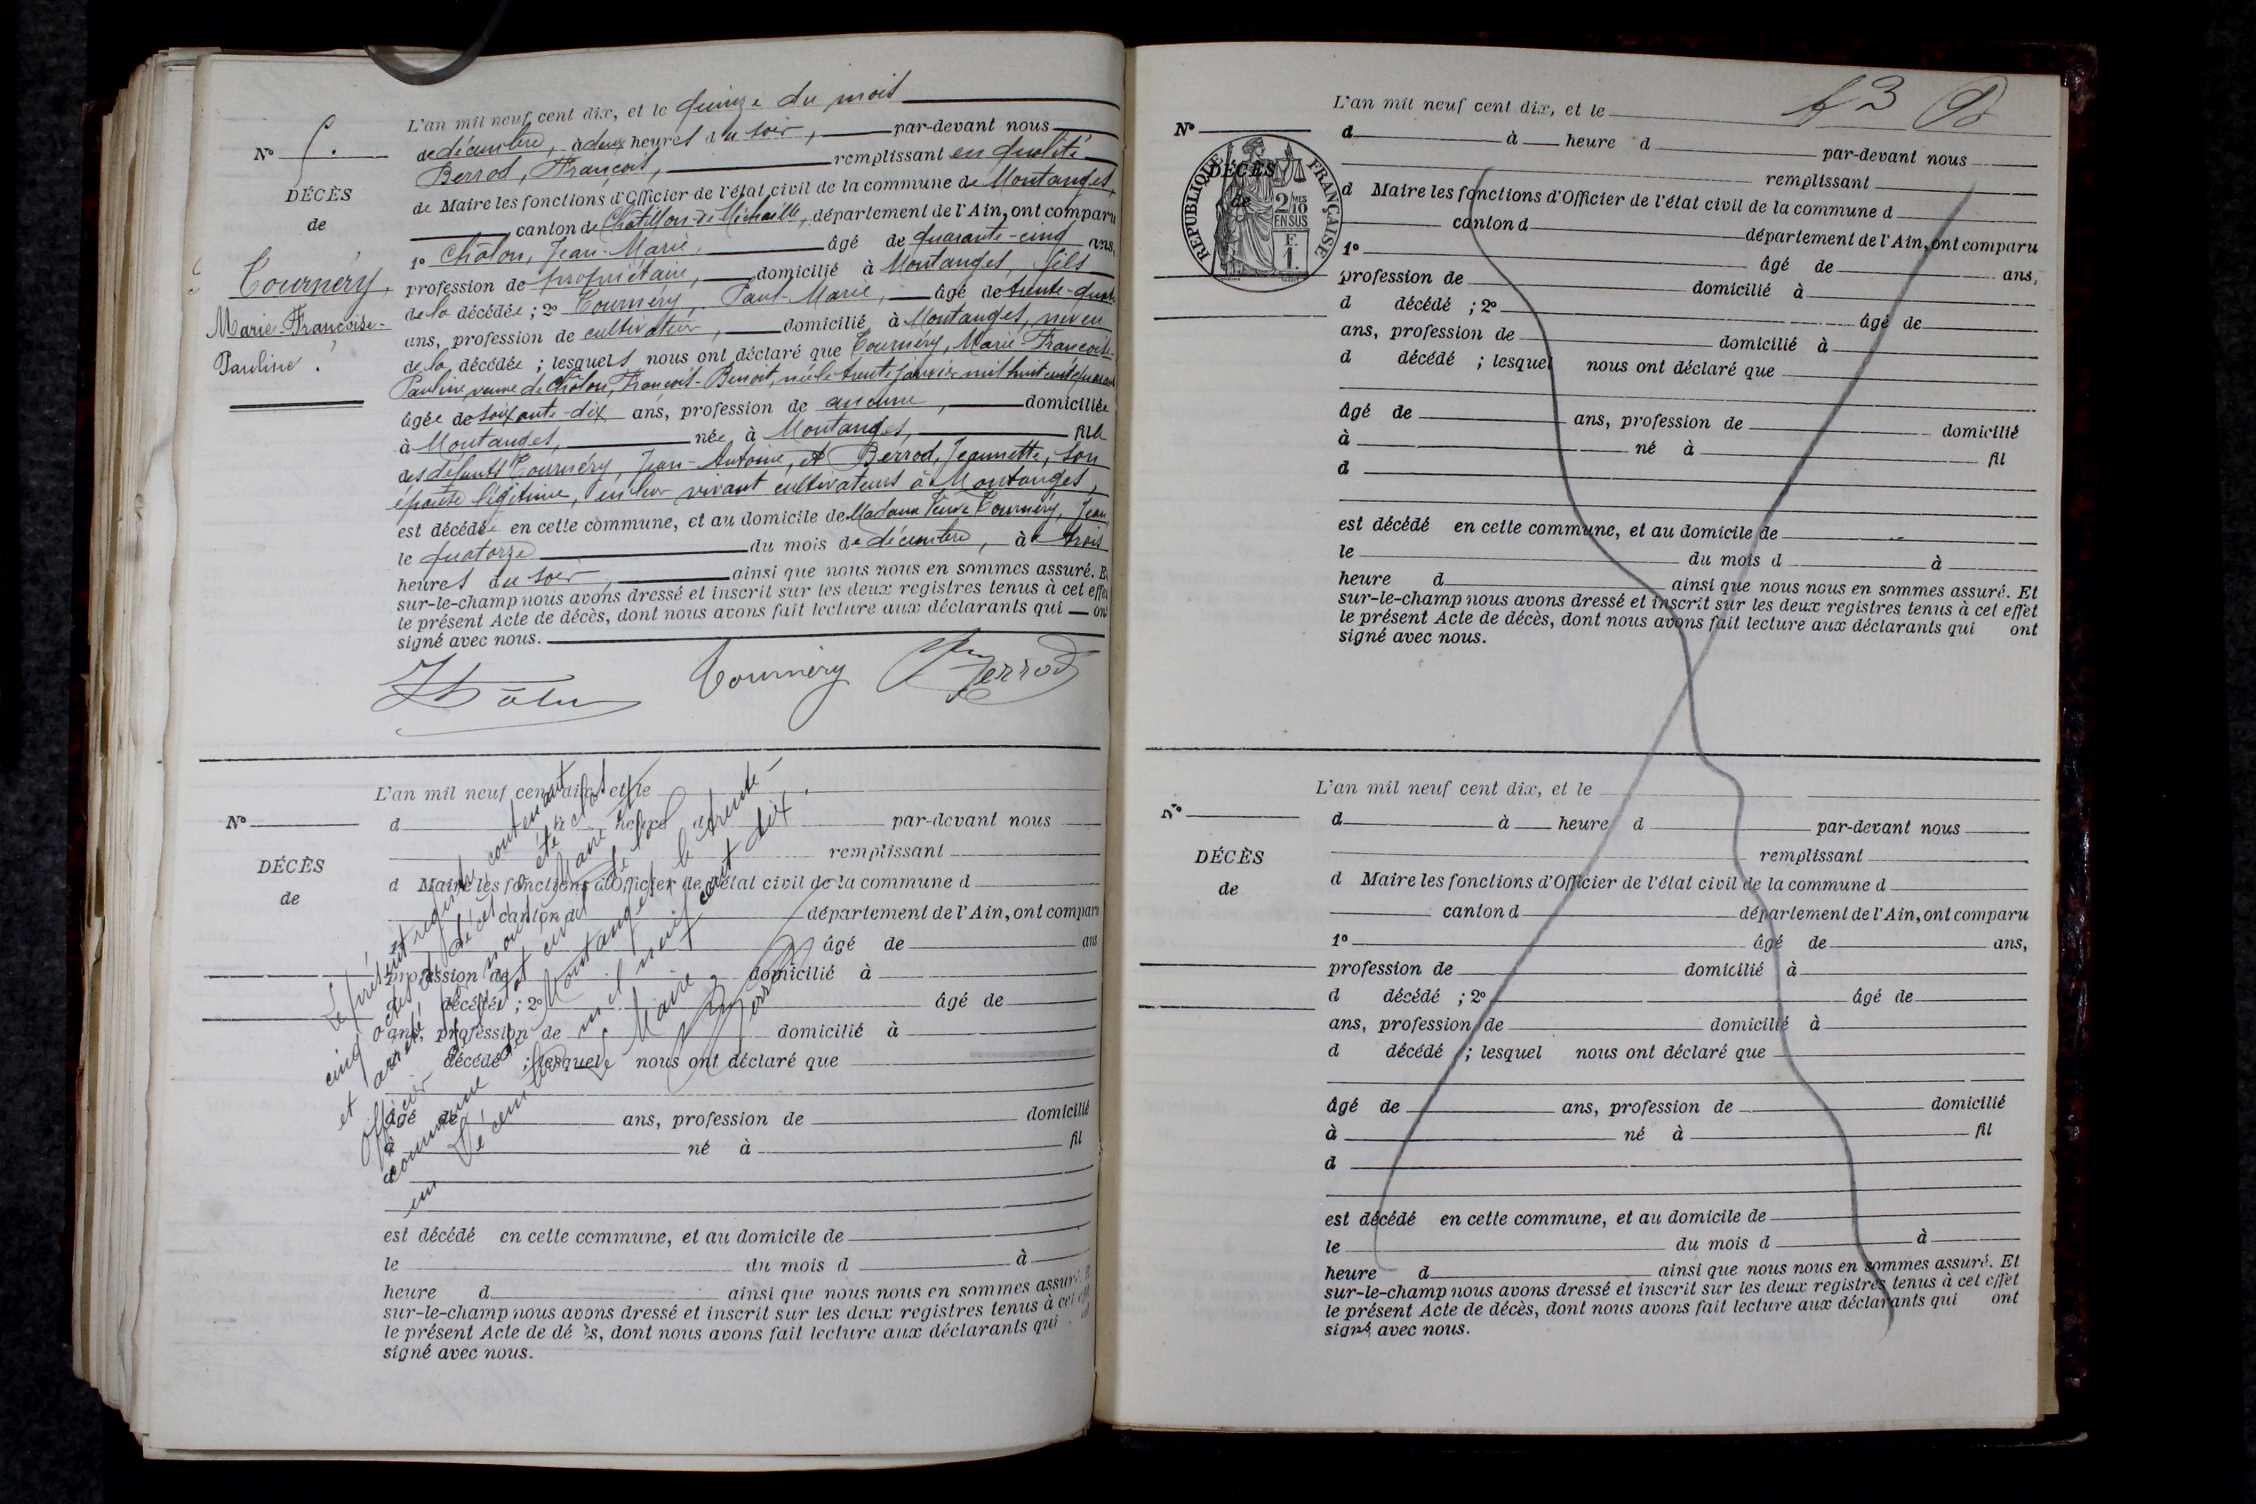 L'an mil neuf cent dix, et le quinze du mois
de décembre, à deux heures du soir, par-devant nous
Berrod, François, remplissant en qualité
de Maire les fonctions d'Officier de l'état civil de la commune de Montanges,
canton de Châtillon-de-Michaille, département de l'Ain, ont comparu
1º Châlon, Jean-Marie, âgé de quarante-cinq ans,
profession de propriétaire, domicilié à Montanges, fils
de la décédée ; 2º Tournéry, Paul-Marie, âgé de trente-quatre
ans, profession de cultivateur, domicilié à Montanges, neveu
de la décédée ; lesquels nous ont déclaré que Tournéry, Marie-Françoise-
Pauline, veuve de Châlon, François-Benoit, née le trente janvier mil huit cent quarante
âgée de soixante-dix ans, profession de aucune, domiciliée
à Montanges, née à Montanges, fille
des défunts Tournéry, Jean-Antoine, et Berrod, Jeannette, son
épouse légitime, en leur vivant cultivateurs à Montanges,
est décédée en cette commune, et au domicile de Madame Veuve Tournéry, Jean,
le quatorze du mois de décembre, à trois
heures du soir, ainsi que nous nous en sommes assuré. Et
sur-le-champ nous avons dressé et inscrit sur les deux registres tenus à cet effet
le présent Acte de décès, dont nous avons fait lecture aux déclarants qui ont
signé avec nous.
Nº 5.
DÉCÈS
de
Tournéry,
Marie-Françoise-
Pauline.
Châlon Tournéry Berrod
L'an mil neuf cent dix, et le
Nº
d à heure d par-devant nous
remplissant
DÉCÈS
de
d Maire les fonctions d'Officier de l'état civil de la commune d
canton d département de l'Ain, ont comparu
1º âgé de ans
profession de domicilié à
d décédé ; 2º âgé de
ans, profession de domicilié à
d décédé ; lesquel nous ont déclaré que
âgé de ans, profession de domicilié
à né à fil
d
est décédé en cette commune, et au domicile de
le du mois d à
heure d ainsi que nous nous en sommes assuré. Et
sur-le-champ nous avons dressé et inscrit sur les deux registres tenus à cet effet
le présent Acte de décès, dont nous avons fait lecture aux déclarants qui ont
signé avec nous.
Le présent registre contenant
cinq actes de décès a été clos
et arrêté par nous, Maire et
Officier de l'état civil de la
commune de Montanges le trente-
en Décembre mil neuf cent dix.
Le Maire,
Berrod
L'an mil neuf cent dix, et le
Nº
d à heure d par-devant nous
remplissant
RÉPUBLIQUE FRANÇAISE
2/10 MES
EN SUS
F.
1.
DÉCÈS
de
d Maire les fonctions d'Officier de l'état civil de la commune d
canton d département de l'Ain, ont comparu
1º âgé de ans,
profession de domicilié à
d décédé ; 2º âgé de
ans, profession de domicilié à
d décédé ; lesquel nous ont déclaré que
âgé de ans, profession de domicilié
à né à fil
d
est décédé en cette commune, et au domicile de
le du mois d à
heure d ainsi que nous nous en sommes assuré. Et
sur-le-champ nous avons dressé et inscrit sur les deux registres tenus à cet effet
le présent Acte de décès, dont nous avons fait lecture aux déclarants qui ont
signé avec nous.
L'an mil neuf cent dix, et le
Nº
d à heure d par-devant nous
remplissant
DÉCÈS
de
d Maire les fonctions d'Officier de l'état civil de la commune d
canton d département de l'Ain, ont comparu
1º âgé de ans,
profession de domicilié à
d décédé ; 2º âgé de
ans, profession de domicilié à
d décédé ; lesquel nous ont déclaré que
âgé de ans, profession de domicilié
à né à fil
d
est décédé en cette commune, et au domicile de
le du mois d à
heure d ainsi que nous nous en sommes assuré. Et
sur-le-champ nous avons dressé et inscrit sur les deux registres tenus à cet effet
le présent Acte de décès, dont nous avons fait lecture aux déclarants qui ont
signé avec nous.